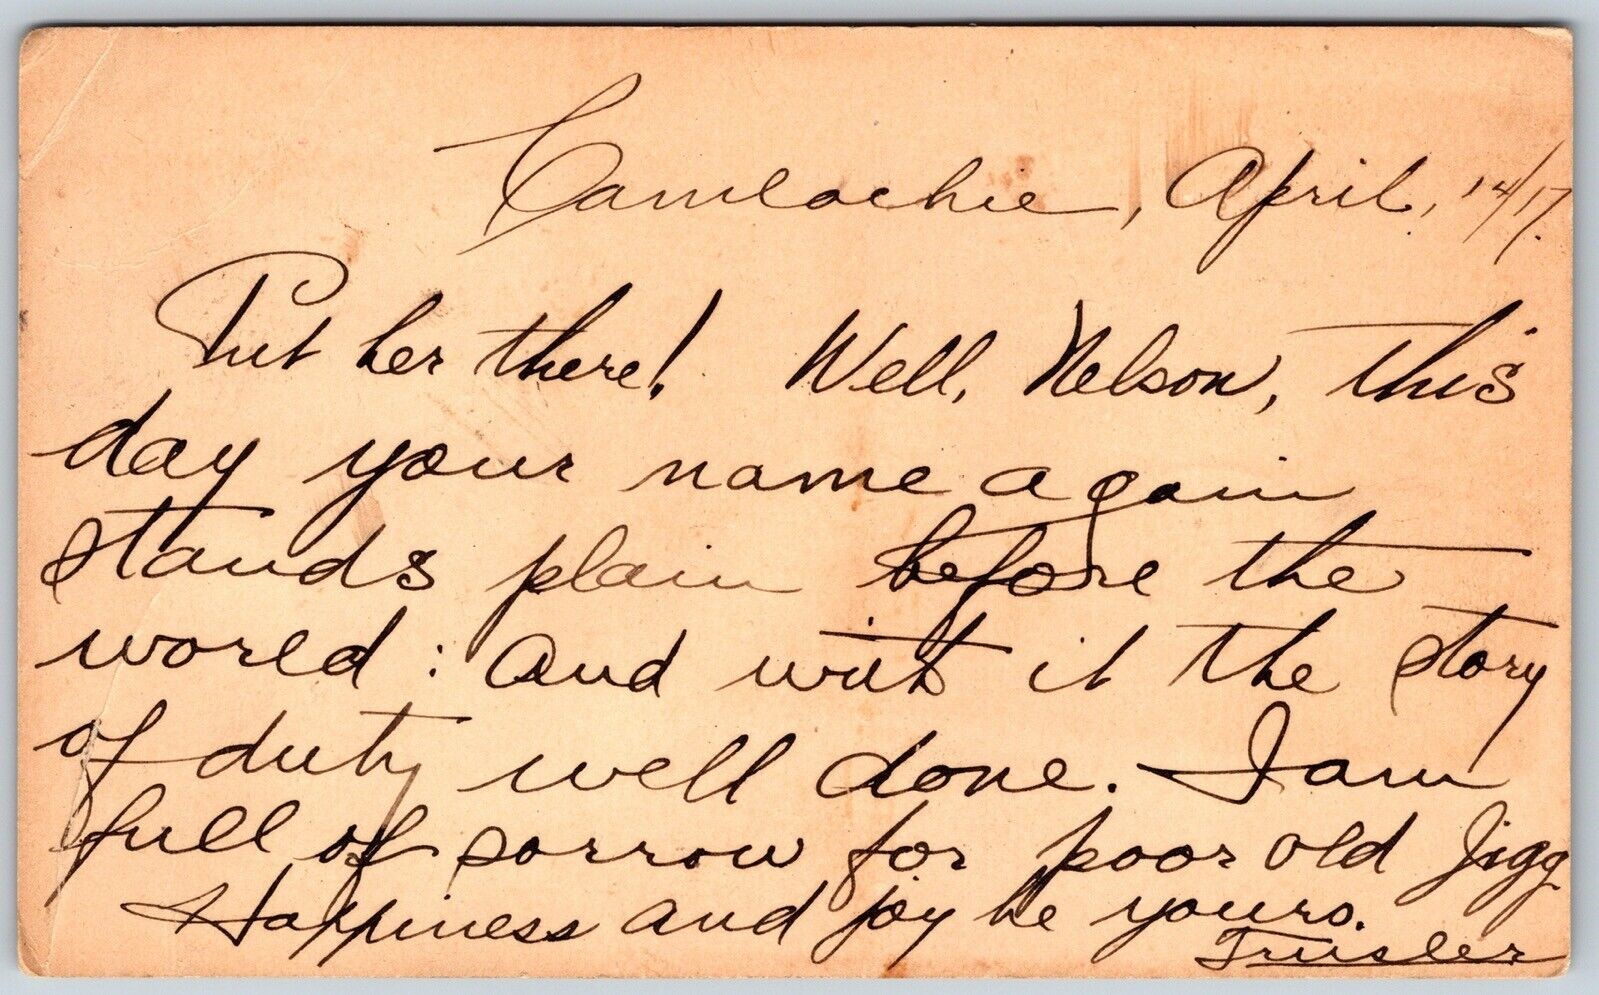 Camlachie, April, 14/17.
Put her there! Well, Nelson, this
day your name again
stands plain before the
world: and with it the story
of duty well done. I am
full of sorrow for poor old Jigg
Happiness and joy be yours.
Trusler